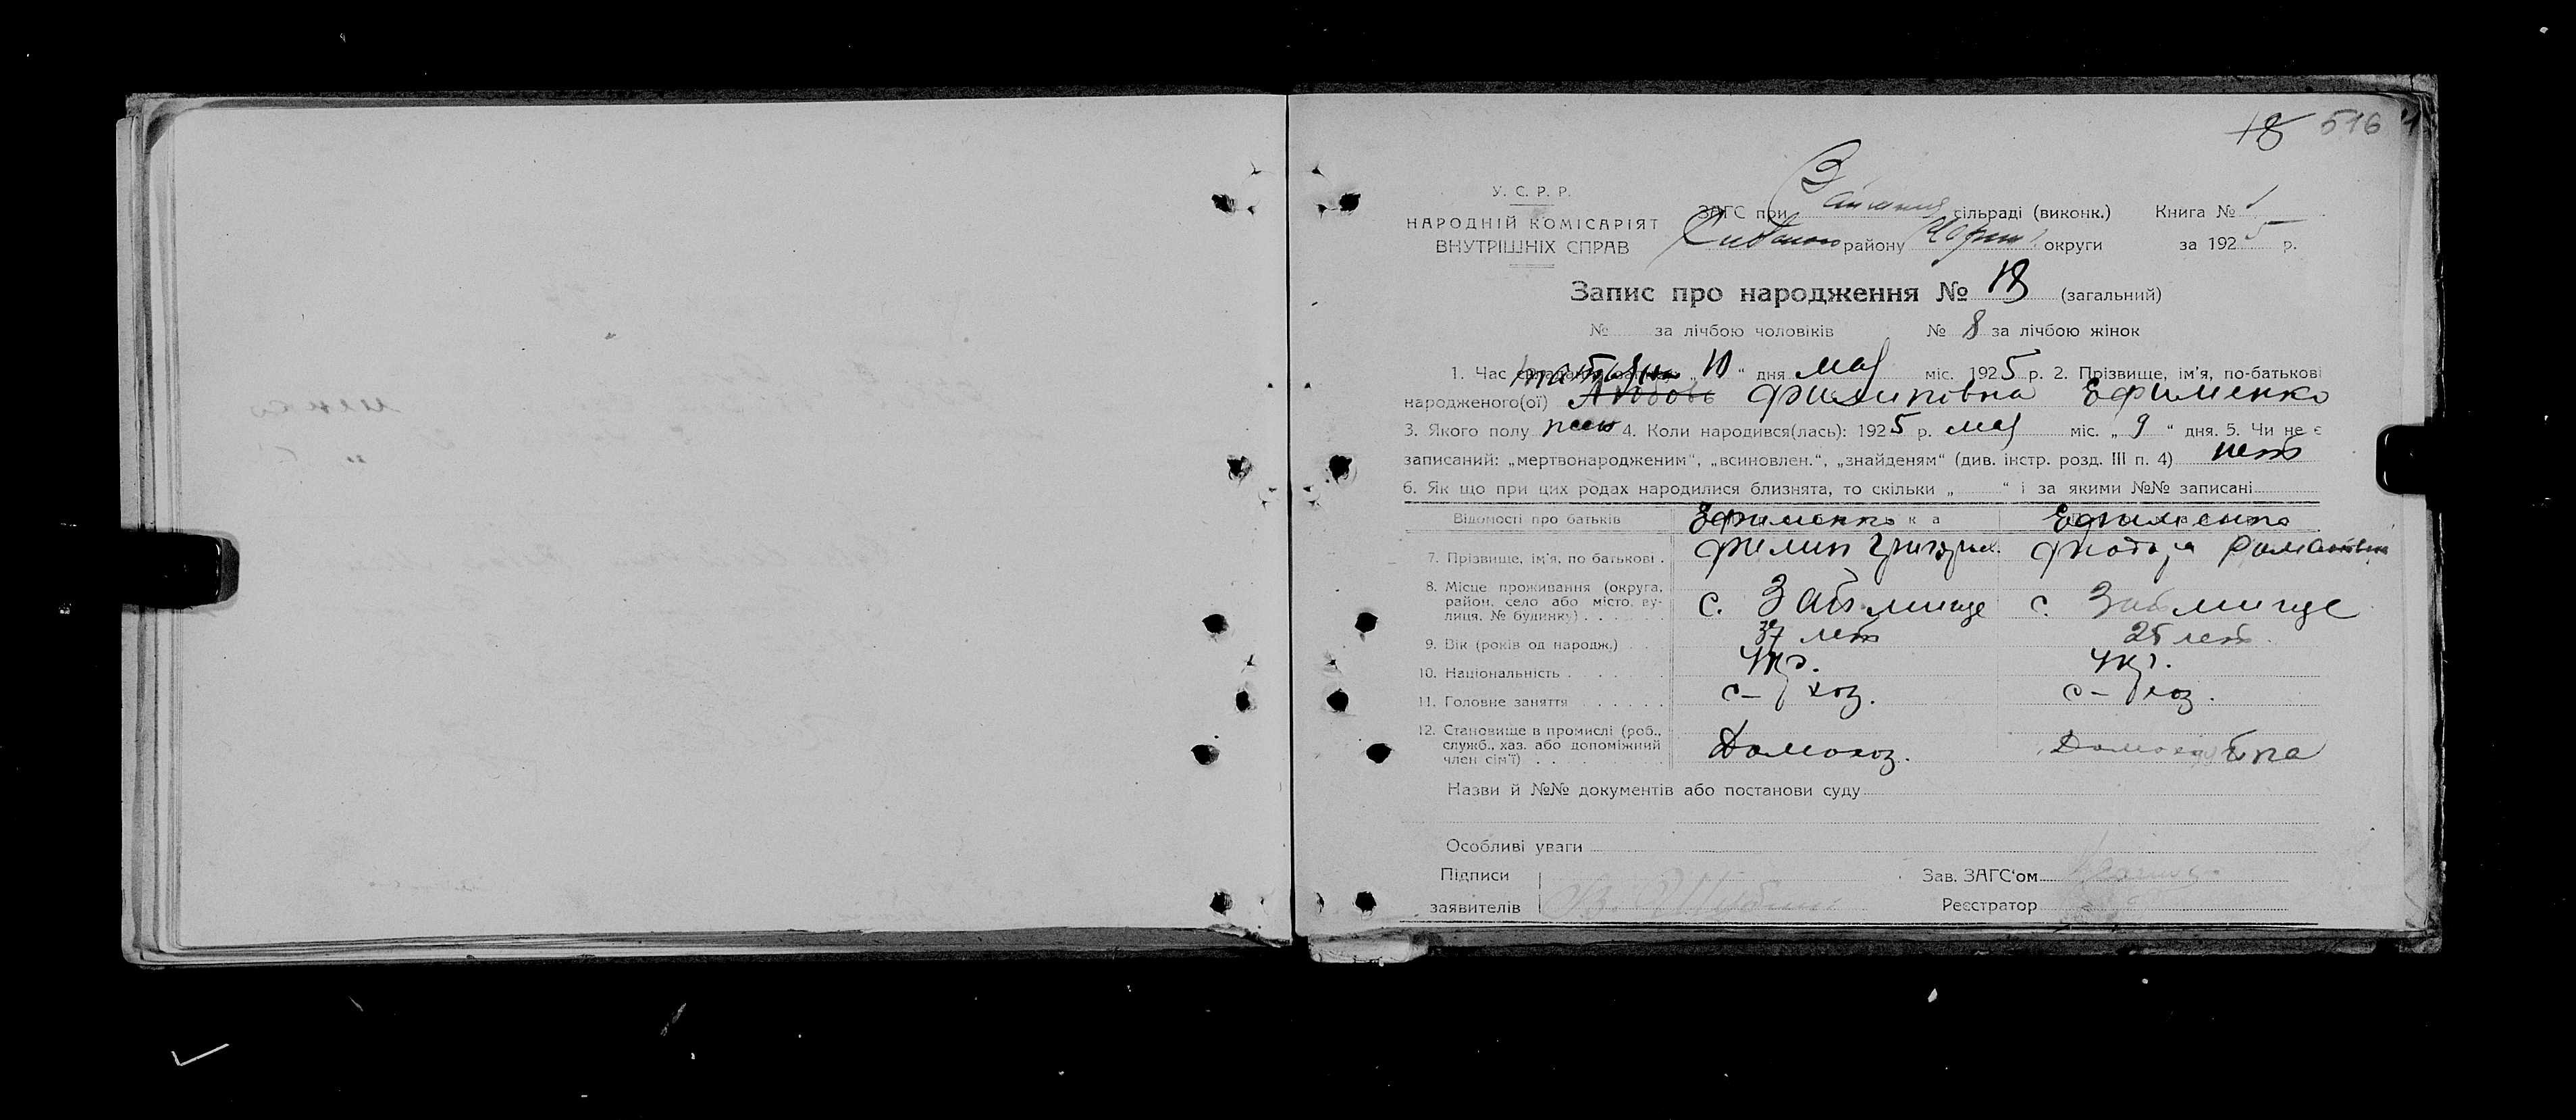 18 516
У. С. Р. Р.
НАРОДНІЙ КОМІСАРІЯТ
ВНУТРІШНІХ СПРАВ
ЗАГС при сільраді (виконк.) Книга № 1
району округи за 1925 р.
Запис про народження № 18 (загальний)
№ за лічбою чоловіків № 8 за лічбою жінок
1. Час складання запису „10“ дня мая міс. 1925 р. 2. Прізвище, ім'я, по-батькові
Татьяна
народженого(ої) Любовь Филиповна Ефименко
3. Якого полу жен 4. Коли народився(лась): 1925 р. мая міс. „9“ дня. 5. Чи не є
записаний: „мертвонародженим“, „всиновлен.“, „знайденям“ (див. інстр. розд. III п. 4) нет
6. Як що при цих родах народилися близнята, то скільки „ “ і за якими №№ записані
Відомості про батьків Ефименко Ефименко
7. Прізвище, ім'я, по батькові . Филип Григорьев. Романовна
8. Місце проживання (округа, район, село або місто, вулиця, № будинку) с. Займище с. Займище
9. Вік (років од народж.) 37 лет 25 лет
10. Національність Укр. Укр.
11. Головне заняття с-хоз. с-хоз.
12. Становище в промислі (роб., служб., хаз. або допоміжний член сім'ї) Домохоз.
Назви й №№ документів або постанови суду
Особливі уваги
Підписи Зав. ЗАГС'ом
заявителів Реєстратор